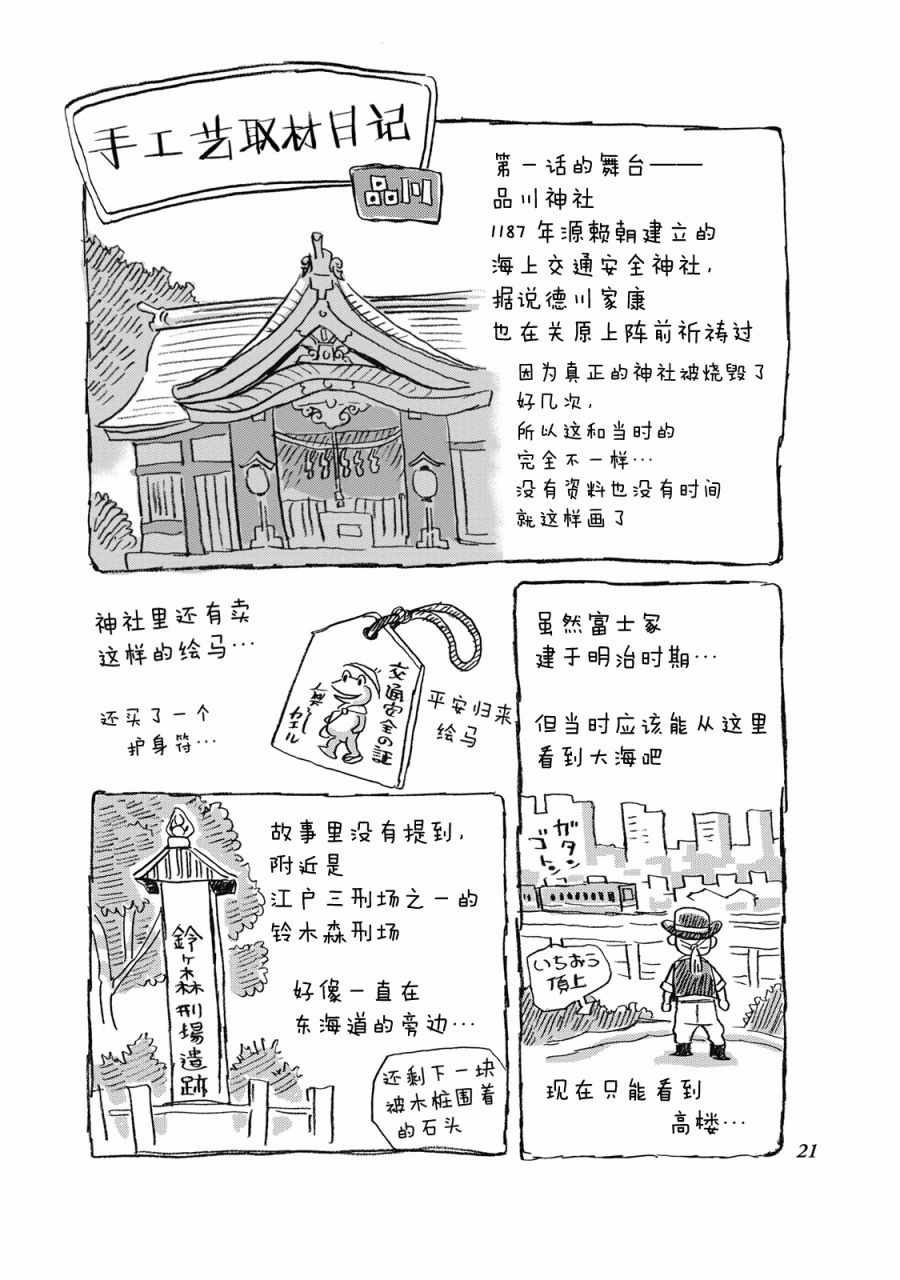 手工艺取材日记
品川
第一话的舞台——
品川神社
1187年源赖朝建立的
海上交通安全神社,
据说德川家康
也在关原上阵前祈祷过
因为真正的神社被烧毁了
好几次,
所以这和当时的
完全不一样…
没有资料也没有时间
就这样画了
神社里还有卖
这样的绘马…
还买了一个
护身符…
交通安全の証
無事カエール
平安归来
绘马
虽然富士冢
建于明治时期…
但当时应该能从这里
看到大海吧
ガタン
ゴトン
いちおう
頂上
现在只能看到
高楼…
故事里没有提到,
附近是
江户三刑场之一的
铃木森刑场
好像一直在
东海道的旁边…
鈴ヶ森刑場遺跡
还剩下一块
被木桩围着
的石头
21